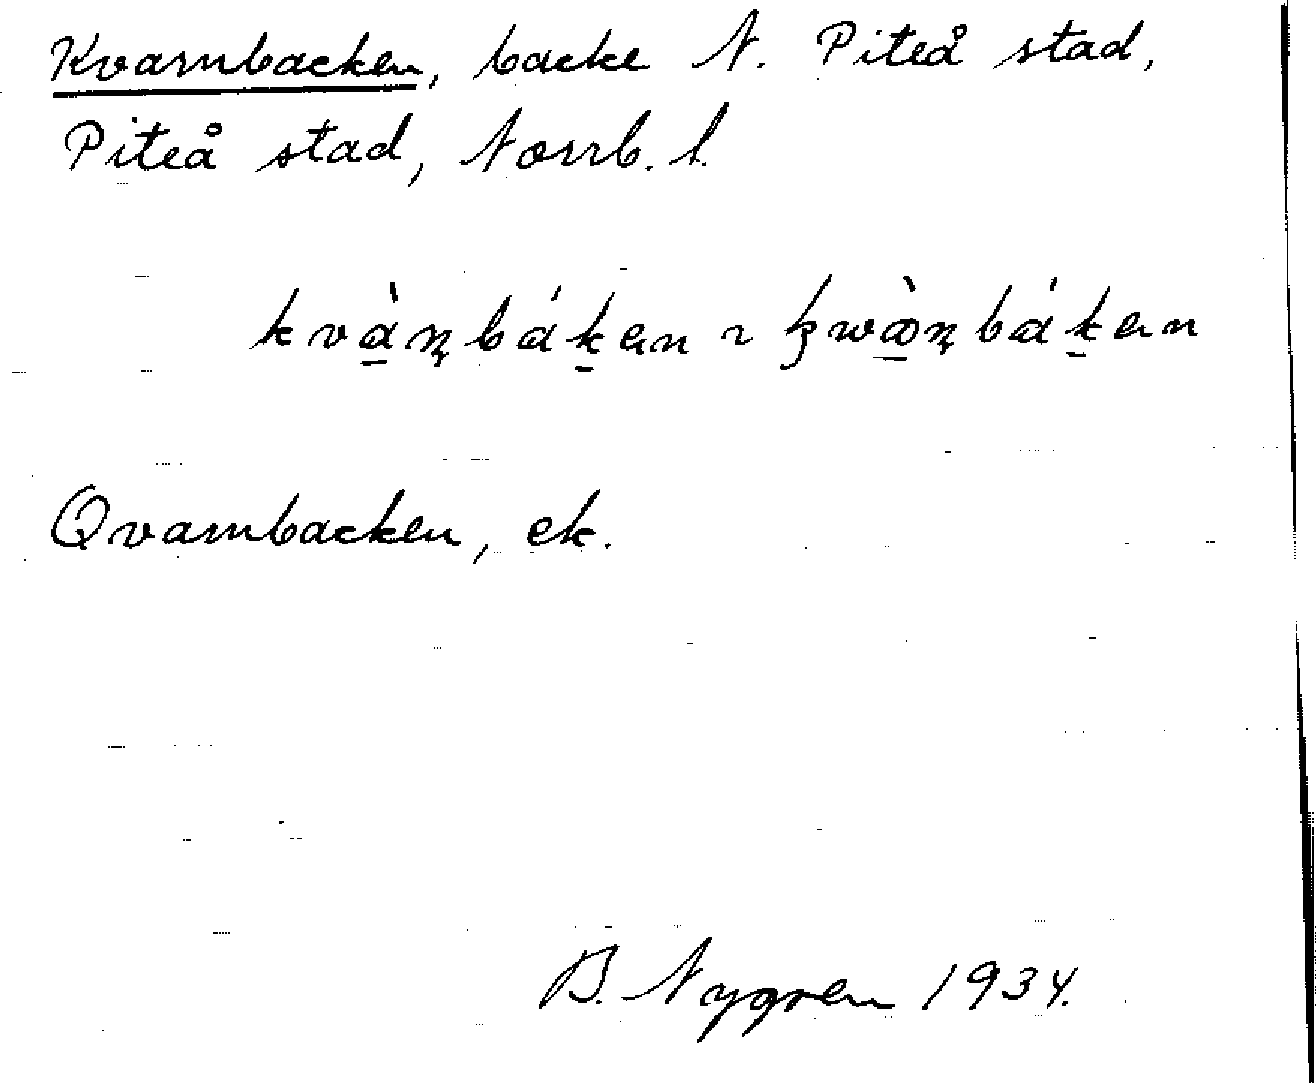 Kvarnbacken, backe N. Piteå stad,
Piteå stad, Norrb. l.
kvà̱ɳbáḵen ~ kwò̱ɳbáḵen
Qvarnbacken, ek.
B. Nygren 1934.